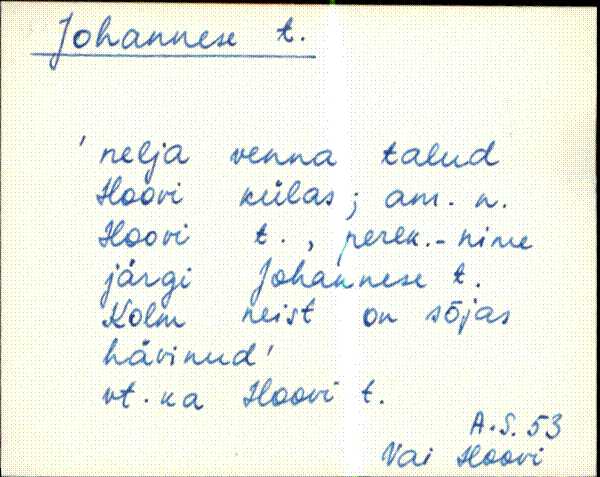 Johannese t.
'nelja venna talud
Hoovi külas; am. n.
Hoovi t., perek.-nime
järgi Johannese t.
Kolm neist on sõjas
hävinud'
vt. ka Hoovi t.
A.S. 53
Vai Hoovi